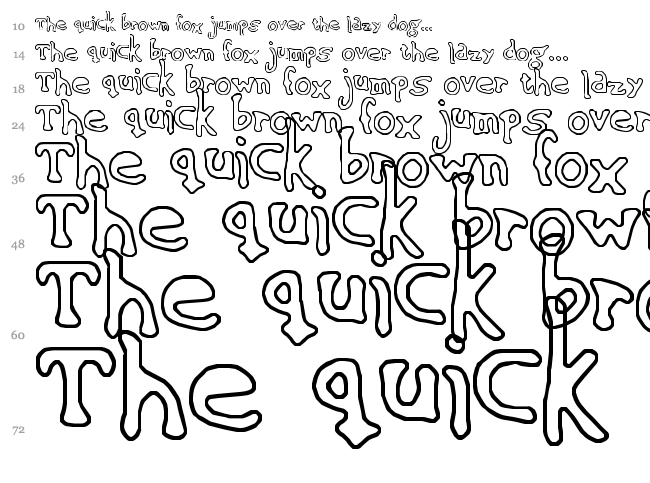 10 The quick brown fox jumps over the lazy dog...
14 The quick brown fox jumps over the lazy dog...
18 The quick brown fox jumps over the lazy
24 The quick brown fox jumps over
36 The quick brown fox
48 The quick brow
60 The quick bro
72 The quick